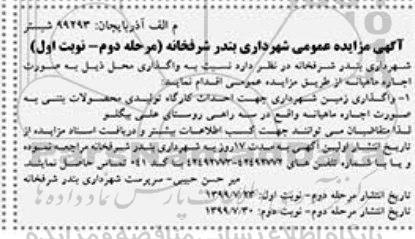 م الف آذربایجان: ۹۹۲۹۳ شبستر
آگهی مزایده عمومی شهرداری بندر شرفخانه (مرحله دوم- نوبت اول)
شهرداری بندر شرفخانه در نظر دارد نسبت به واگذاری محل ذیل به صورت
اجاره ماهیانه از طریق مزایده عمومی اقدام نماید.
۱- واگذاری زمین شهرداری جهت احداث کارگاه تولیدی محصولات بتنی به
صورت اجاره ماهیانه واقع در سه راهی روستای علی بیگلو
لذا متقاضیان می توانند جهت کسب اطلاعات بیشتر و دریافت اسناد مزایده از
تاریخ انتشار اولین آگهی به مدت ۱۷روز به شهرداری بندر شرفخانه مراجعه نموده
و یا با شماره تلفن های ۴۲۴۹۳۷۷۲-۴۲۴۹۲۷۷۳ با کد ۰۴۱ تماس حاصل نمایند.
میر حسن حبیبی- سرپرست شهرداری بندر شرفخانه
تاریخ انتشار مرحله دوم- نوبت اول: ۱۳۹۹/۷/۲۳
تاریخ انتشار مرحله دوم- نوبت دوم: ۱۳۹۹/۷/۳۰